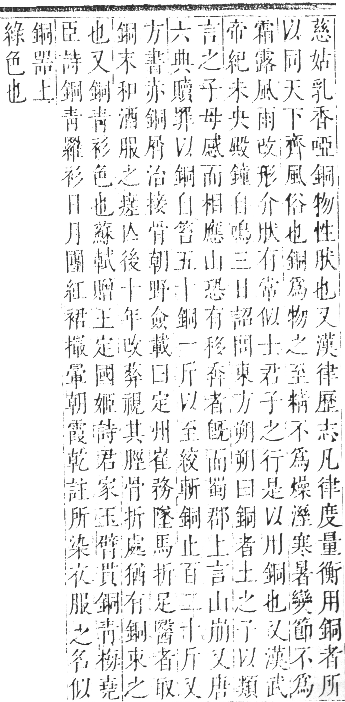 慈姑乳香啞銅物性肰也又漢律歷志凡律度量衡用銅者所
以同天下齊風俗也銅爲物之至精不爲燥溼寒暑變節不爲
霜露風雨改形介肰有常似士君子之行是以用銅也又漢武
帝紀未央殿鐘自鳴三日詔問東方朔朔曰銅者土之子以類
言之子母感而相應山恐有移夲者旣而蜀郡上言山崩又唐
六典贖罪以銅自笞五十銅一斤以至絞斬銅止百二十斤又
方書亦銅屑治接骨朝野僉載曰定州崔務墜馬折足醫者取
銅末和酒服之遂㾗後十年改葬視其脛骨折處猶有銅束之
也又銅青衫色也蘇軾贈王定國姬詩君家玉臂貫銅青楊堯
臣詩銅青羅衫日月團紅裙撮暈朝霞乾註所染衣服之名似
銅器上
綠色也